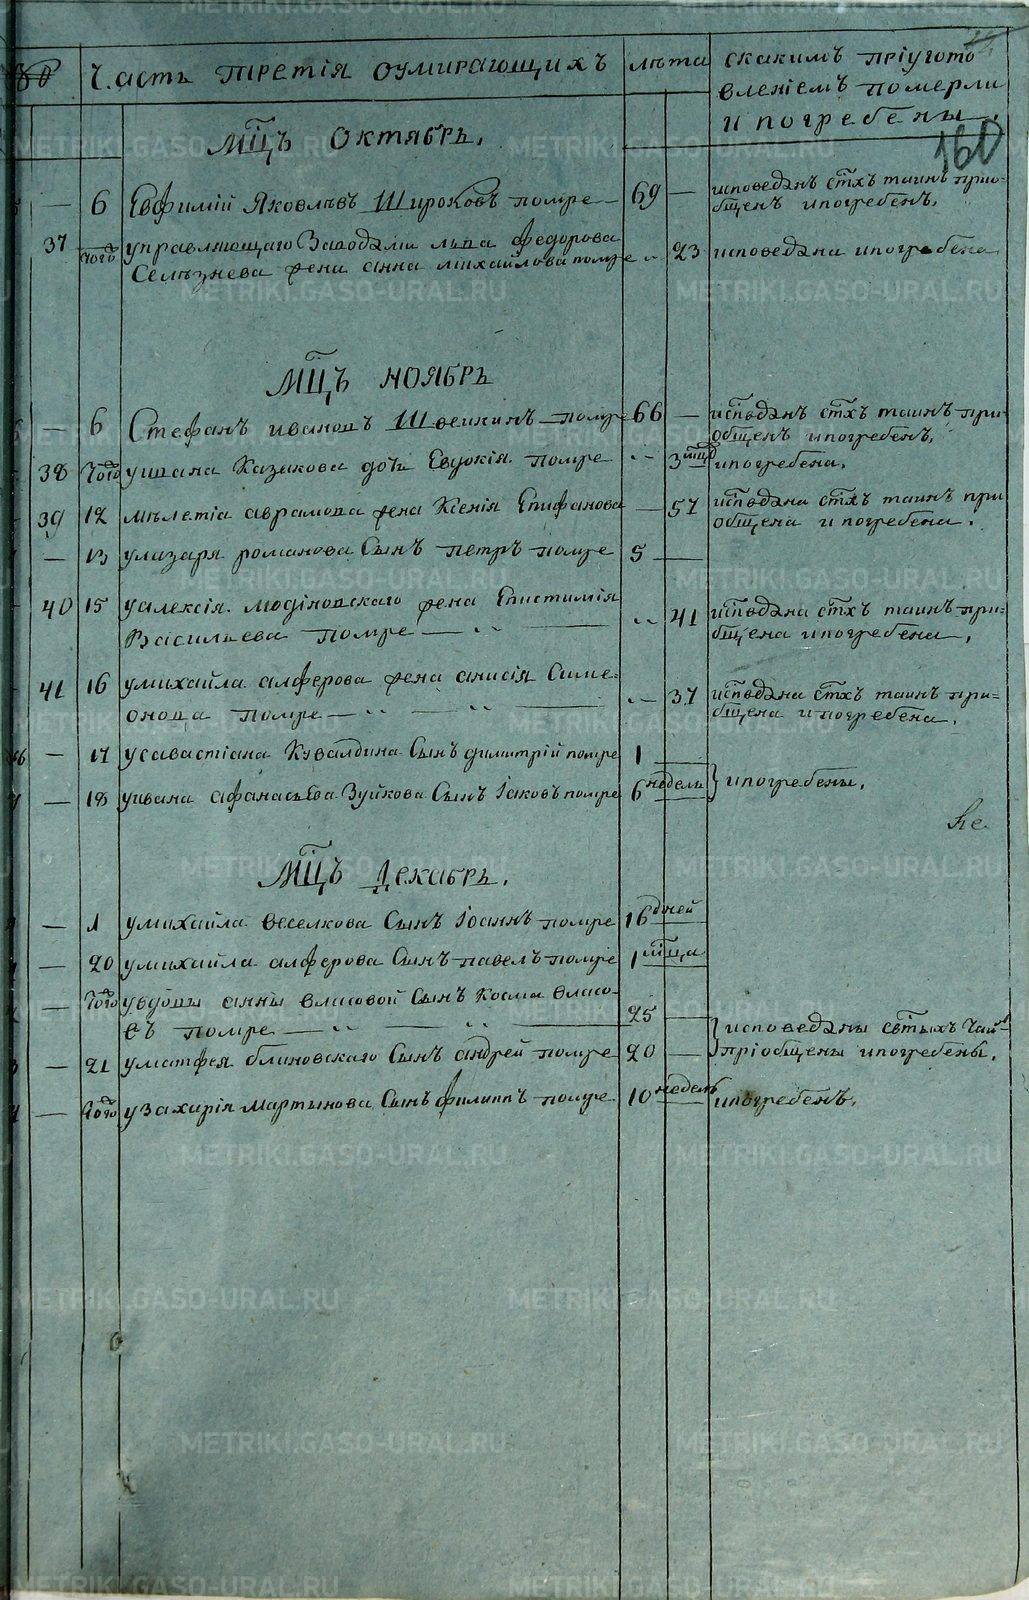 Часть третія оумирающихъ
лѣта
скакимъ пріугото
вленіемъ померли
и погребены.
160
Мцъ Октябрь.
— 6 Евфимій Яковлѣвъ Широковъ помре — 69 — исповеданъ стхъ таинъ прио-
бщенъ ипогребенъ.
37 того управляющаго Заводами льва федорова
Селѣзнева жена анна михайлова помре 23 исповедана ипогребена
Мцъ ноябрь
— 6 Стефанъ ивановъ Швеикинъ помре 66 — исповеданъ стхъ таинъ при-
общенъ ипогребенъ.
38 того уивана Казакова дочь Евдокія помре 3 мцо ипогребена.
39 12 мѣлетіа аврамова жена Ксенія Епифанова — 57 исповедана стхъ таинъ при
общена и погребена.
— 13 улазаря романова Сынъ петръ помре 5 —
40 15 уалексія жена Епистимія
Васильева помре — 41 исповедана стхъ таинъ при=
бщена ипогребена.
41 16 умихайла алферова жена анисія Симе-
онова помре — 37 исповедана стхъ таинъ при=
бщена ипогребена.
— 17 усавастіана Кувалдина Сынъ димитрій помре 1
— 18 уивана афанасьева Зуйкова Сынъ Іаковъ помре 6 недель ипогребены.
Мцъ декабрь.
— 1 умихайла веселкова Сынъ Іоаннъ помре 16 дней
— 20 умихайла алферова Сынъ павелъ помре 1 мца
— того увдовы анны власовой Сынъ Косма власо-
въ помре — 25 — исповеданы светыхъ Тай
— 21 уматфея блиновскаго Сынъ андрей помре 20 — пріобщены ипогребены.
— того узахарія мартынова Сынъ филиппъ помре 10 недель ипогребенъ.
METRIKI.GASO-URAL.RU